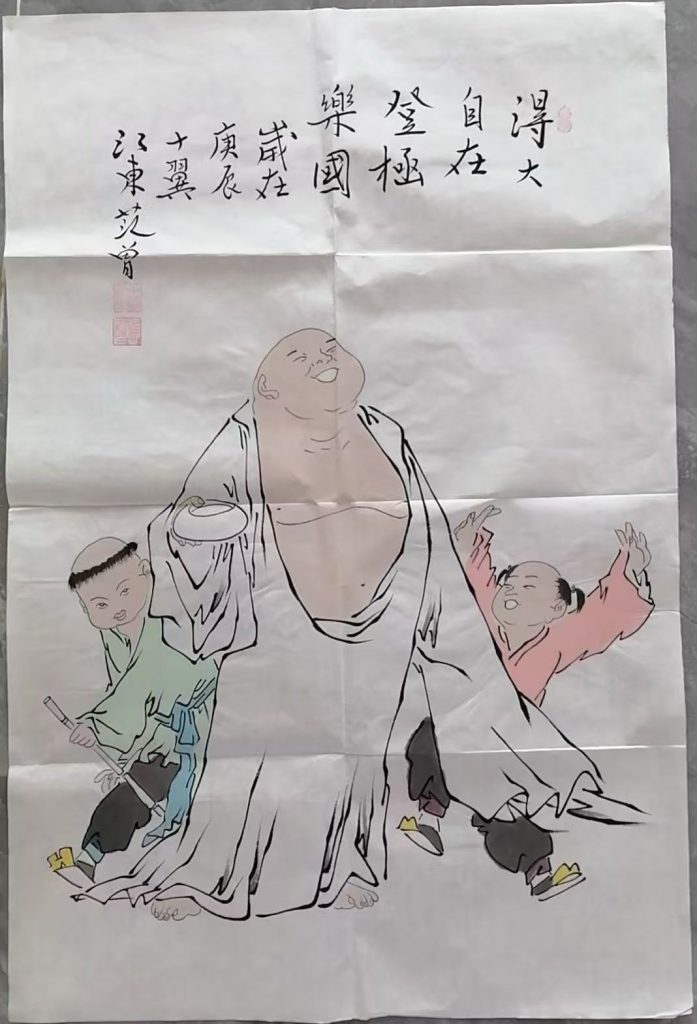 得大
自在
登極
樂國
歲在
庚辰
十翼
江東范曾